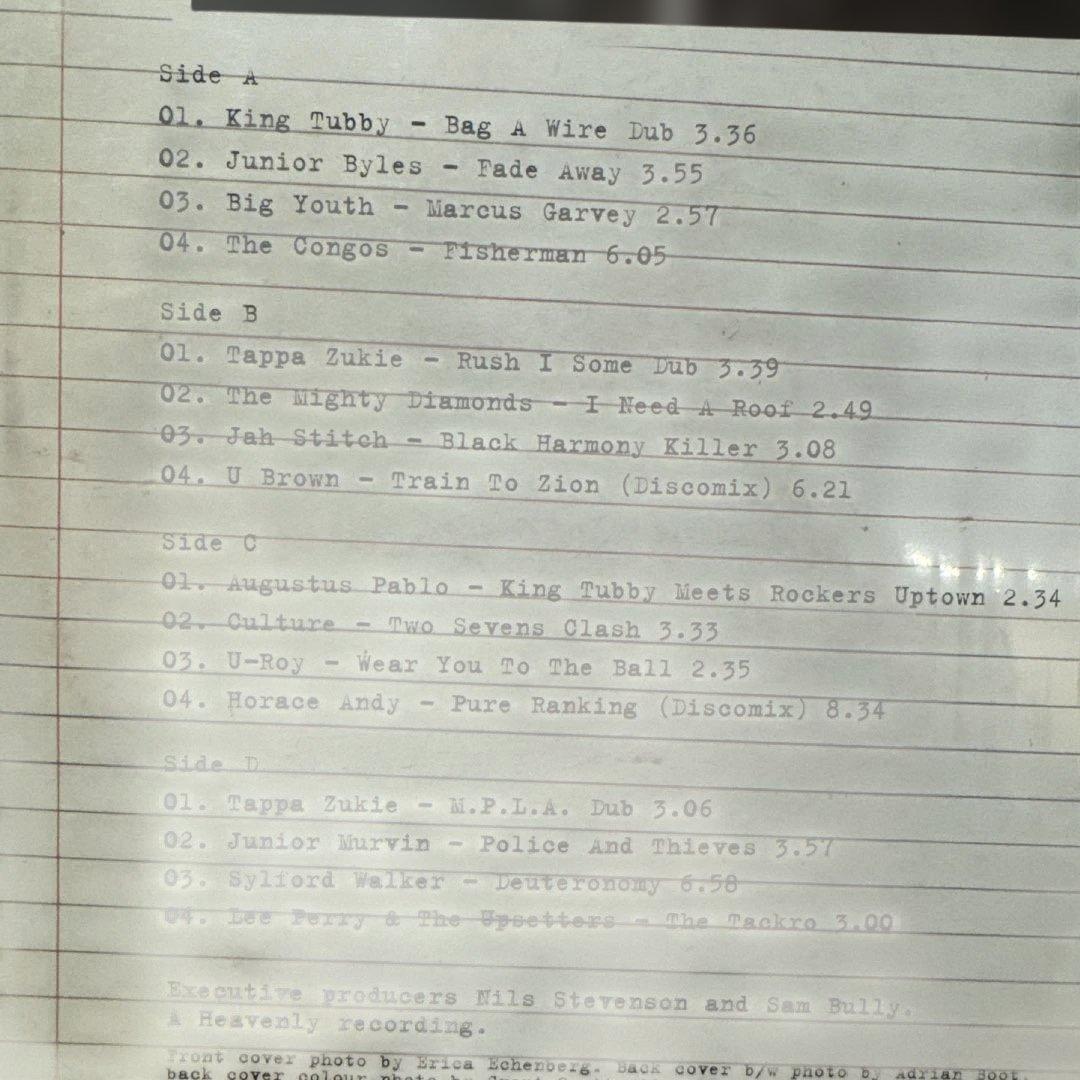 Side A
01. King Tubby - Bag A Wire Dub 3.36
02. Junior Byles - Fade Away 3.55
03. Big Youth - Marcus Garvey 2.57
04. The Congos - Fisherman 6.05
Side B
01. Tappa Zukie - Rush I Some Dub 3.39
02. The Mighty Diamonds - I Need A Roof 2.49
03. Jah Stitch - Black Harmony Killer 3.08
04. U Brown - Train To Zion (Discomix) 6.21
Side C
01. Augustus Pablo - King Tubby Meets Rockers Uptown 2.34
02. Culture - Two Sevens Clash 3.33
03. U-Roy - Wear You To The Ball 2.35
04. Horace Andy - Pure Ranking (Discomix) 8.34
Side D
01. Tappa Zukie - M.P.L.A. Dub 3.06
02. Junior Murvin - Police And Thieves 3.57
03. Sylford Walker - Deuteronomy 6.58
04. Lee Perry & The Upsetters - The Tackro 3.00
Executive producers Nils Stevenson and Sam Bully.
A Heavenly recording.
Front cover photo by Erica Echenberg. Back cover b/w photo by Adrian Boot.
back cover colour photo by